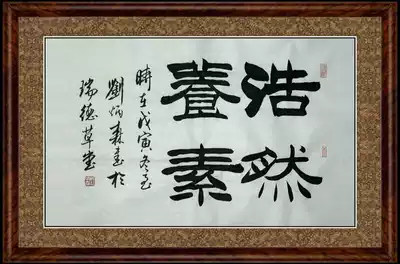 浩然
養素
時在戊寅冬至
劉炳森書於
瑞德草堂